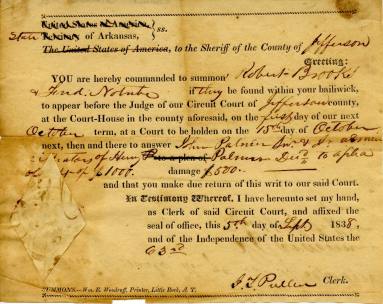 United States of America,
State Territory of Arkansas, } ss.
The United States of America, to the Sheriff of the County of Jefferson
Greeting:
YOU are hereby commanded to summon Robert Brooks
& Fred. Notrebe if they be found within your bailiwick,
to appear before the Judge of our Circuit Court of Jefferson county,
at the Court-House in the county aforesaid, on the first day of our next
October term, at a Court to be holden on the 15th day of October
next, then and there to answer John Palmer &
of to a plea of Palmer Decd to a plea
of of $1000. damage $500.
and that you make due return of this writ to our said Court.
In Testimony Whereof, I have hereunto set my hand,
as Clerk of said Circuit Court, and affixed the
seal of office, this 5th day of Sept 1838,
and of the Independence of the United States the
63rd
Pullen Clerk.
SUMMONS.—Wm. E. Woodruff, Printer, Little Rock, A. T.